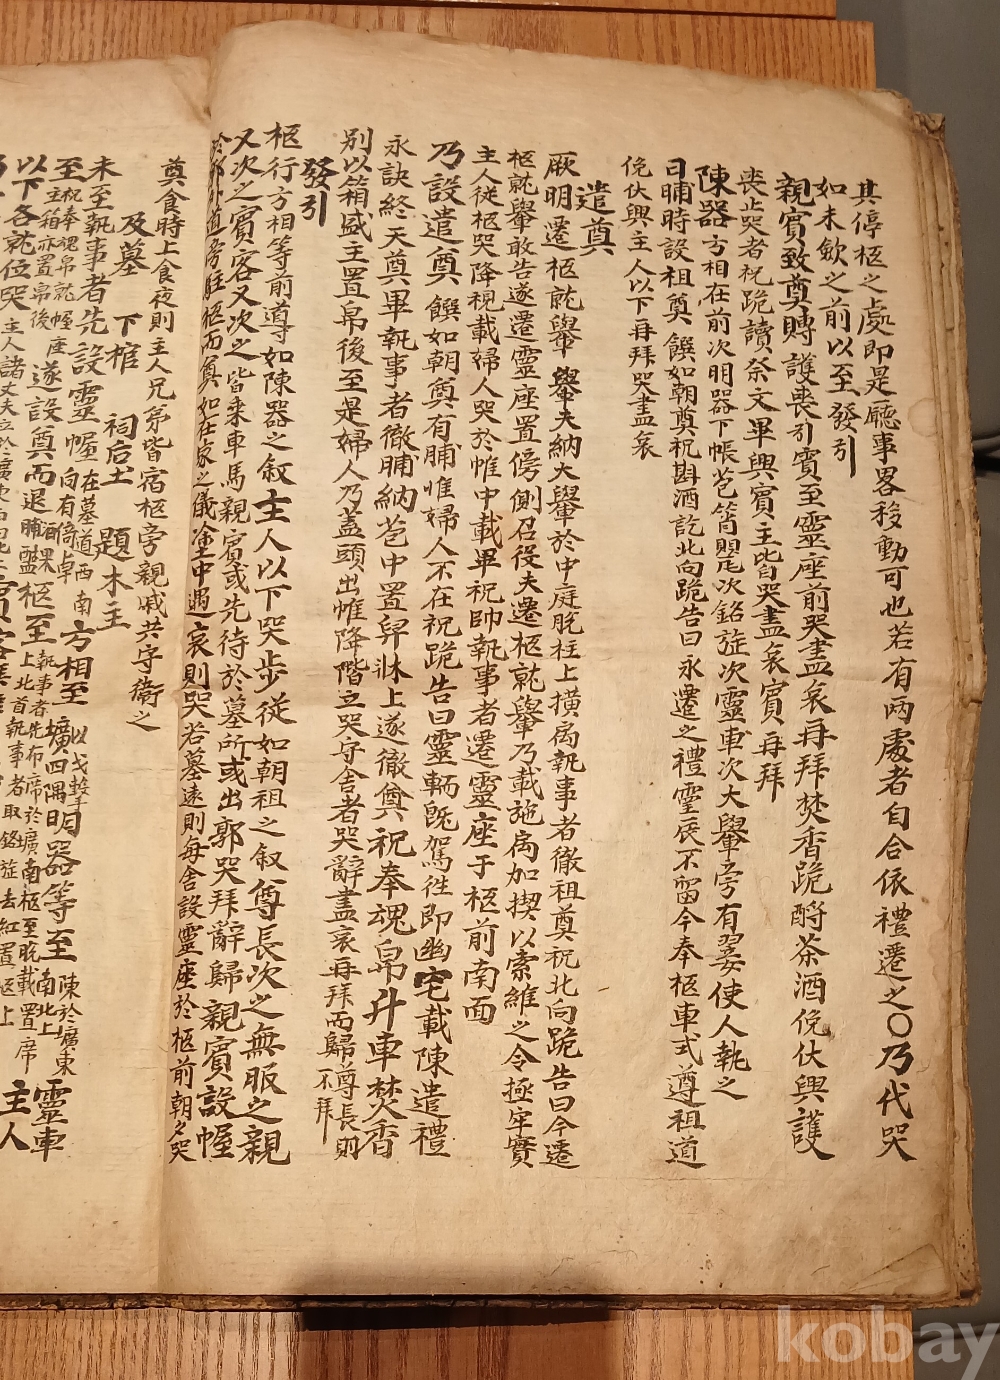 其停柩之處即是廳事畧移動可也若有兩處者自合依禮遷之○乃代哭
如未歛之前以至發引
親賓致奠賻護喪引賓至靈座前哭盡哀再拜焚香跪酹茶酒俛伏興護
喪止哭者祝跪讀祭文畢興賓主皆哭盡哀賓再拜
陳器方相在前次明器下帳苞筲甖次銘旌次靈車次大轝旁有翣使人執之
日晡時設祖奠饌如朝奠祝斟酒訖北向跪告曰永遷之禮靈辰不留今奉柩車式遵祖道
俛伏興主人以下再拜哭盡哀
遣奠
厥明遷柩就轝轝夫納大轝於中庭脫柱上橫扃執事者徹祖奠祝北向跪告曰今遷
柩就轝敢告遂遷靈座置傍側召役夫遷柩就轝乃載施扃加揳以索維之令極牢實
主人從柩哭降視載婦人哭於帷中載畢祝帥執事者遷靈座于柩前南面
乃設遣奠饌如朝奠有脯惟婦人不在祝跪告曰靈輀旣駕徃即幽宅載陳遣禮
永訣終天奠畢執事者徹脯納苞中置舁牀上遂徹奠祝奉魂帛升車焚香
別以箱盛主置帛後至是婦人乃盖頭出帷降階立哭守舍者哭辭盡哀再拜而歸尊長則不拜
發引
柩行方相等前導如陳器之叙主人以下哭步從如朝祖之叙尊長次之無服之親
又次之賓客又次之皆乘車馬親賓或先待於墓所或出郭哭拜辭歸親賓設幄
於郭外道旁駐柩而奠如在家之儀塗中遇哀則哭若墓遠則每舍設靈座於柩前朝夕哭
奠食時上食夜則主人兄弟皆宿柩旁親戚共守衛之
及墓 下棺 祠后土 題木主
未至執事者先設靈幄在墓道西南向有倚卓方相至以戈擊壙四隅明器等至陳於壙東南北上靈車
至祝奉魂帛就幄座主箱亦置帛後遂設奠而退酒果脯醢柩至執事者先布席於壙南柩至脫載置席上北首執事者取銘旌去杠置柩上主人
以下各就位哭主人諸丈夫立於壙東